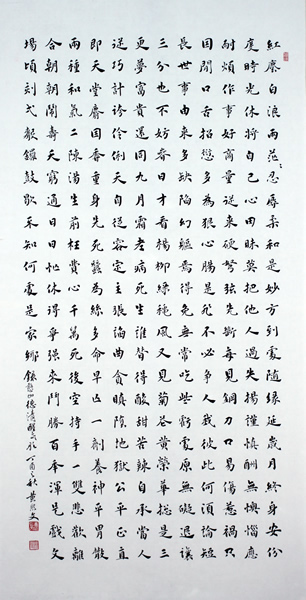 紅塵白浪兩茫茫忍辱柔和是妙方到處隨緣延歲月終身安份
度時光休將自己心田昧莫把他人過失揚謹慎酬無懊惱應
耐煩作事好商量從來硬弩弦先斷每見鋼刀口易傷惹禍只
因閒口舌招愆多為狠心腸是非不必爭人我彼此何須論短
長世事由來多缺陷幻軀焉得免無常吃些虧處原無礙退讓
三分也不妨春日才看楊柳綠秋風又見菊花黃榮華總是三
更夢富貴還同九月霜老病死生誰替得酸甜苦辣自承當人
從巧計誇伶俐天自從容定主張諂曲貪瞋墮地獄公平正直
即天堂麝因香重身先死蠶為絲多命早亡一劑養神平胃散
兩種和氣二陳湯生前枉費心千萬死後空持手一雙悲歡離
合朝朝鬧壽夭窮通日日忙休得爭強來鬥勝百年渾是戲文
場頃刻一聲鑼鼓歇不知何處是家鄉 錄憨山德清醒世歌 丁酉之秋 黃文